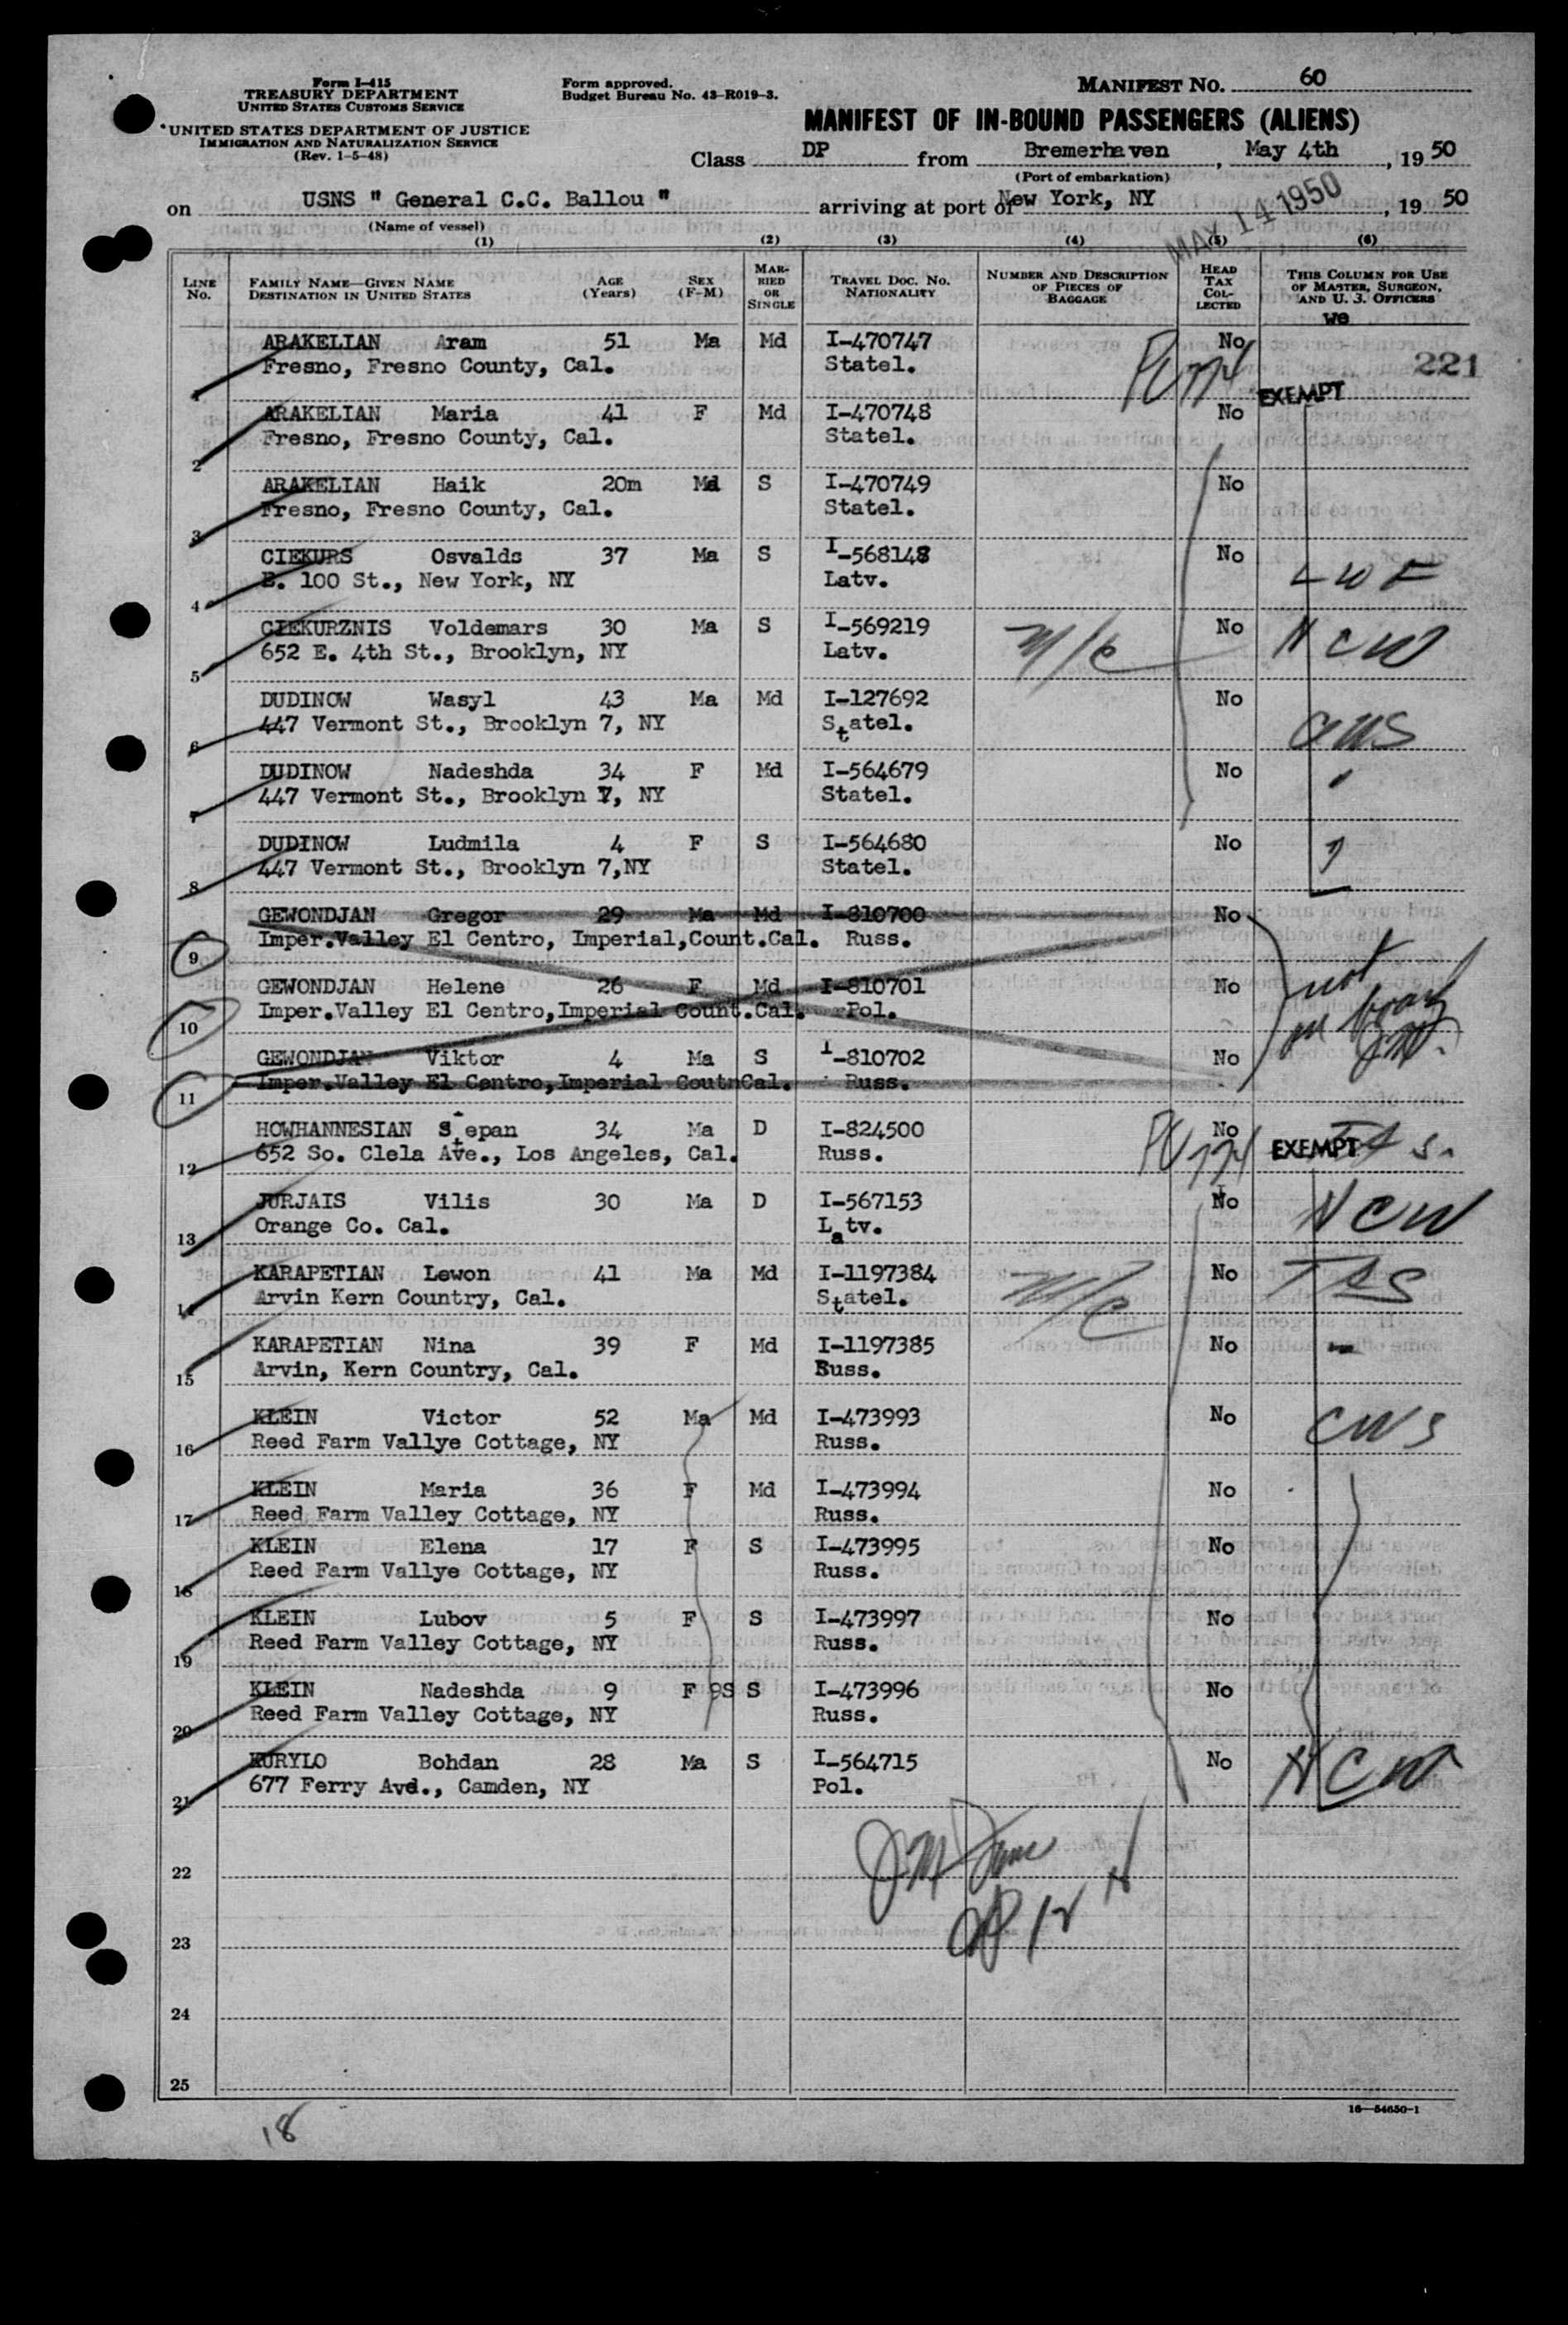 Form I-415
TREASURY DEPARTMENT
UNITED STATES CUSTOMS SERVICE
UNITED STATES DEPARTMENT OF JUSTICE
IMMIGRATION AND NATURALIZATION SERVICE
(Rev. 1-5-48)
Form approved.
Budget Bureau No. 43-R019-3.
MANIFEST NO. 60
MANIFEST OF IN-BOUND PASSENGERS (ALIENS)
Class DP from Bremerhaven, May 4th, 1950
(Port of embarkation)
on USNS " General C.C. Ballou " arriving at port of New York, NY MAY 14 1950, 19 50
(Name of vessel)
(1) (2) (3) (4) (5) (6)
LINE No. FAMILY NAME—GIVEN NAME DESTINATION IN UNITED STATES AGE (Years) SEX (F-M) MARRIED OR SINGLE TRAVEL DOC. NO. NATIONALITY NUMBER AND DESCRIPTION OF PIECES OF BAGGAGE HEAD TAX COLLECTED THIS COLUMN FOR USE OF MASTER, SURGEON, AND U. S. OFFICERS
we
ARAKELIAN Aram 51 Ma Md I-470747 No 221
1 Fresno, Fresno County, Cal. Statel. EXEMPT
ARAKELIAN Maria 41 F Md I-470748 No
2 Fresno, Fresno County, Cal. Statel.
ARAKELIAN Haik 20m Md S I-470749 No
3 Fresno, Fresno County, Cal. Statel.
CIEKURS Osvalds 37 Ma S I-568148 No
4 E. 100 St., New York, NY Latv. LWF
CIEKURZNIS Voldemars 30 Ma S I-569219 No
5 652 E. 4th St., Brooklyn, NY Latv. M/c NCW
DUDINOW Wasyl 43 Ma Md I-127692 No
6 447 Vermont St., Brooklyn 7, NY Statel. CWS
DUDINOW Nadeshda 34 F Md I-564679 No
7 447 Vermont St., Brooklyn 7, NY Statel.
DUDINOW Ludmila 4 F S I-564680 No
8 447 Vermont St., Brooklyn 7,NY Statel.
GEWONDJAN Gregor 29 Ma Md I-810700 No
9 Imper.Valley El Centro, Imperial,Count.Cal. Russ.
GEWONDJAN Helene 26 F Md I-810701 No not
10 Imper.Valley El Centro,Imperial Count.Cal. Pol. on board
GEWONDJAN Viktor 4 Ma S I-810702 No
11 Imper.Valley El Centro,Imperial CoutnCal. Russ.
HOWHANNESIAN Stepan 34 Ma D I-824500 No
12 652 So. Clela Ave., Los Angeles, Cal. Russ. EXEMPT
JURJAIS Vilis 30 Ma D I-567153 No
13 Orange Co. Cal. Latv. NCW
KARAPETIAN Lewon 41 Ma Md I-1197384 No
14 Arvin Kern Country, Cal. Statel. M/c
KARAPETIAN Nina 39 F Md I-1197385 No
15 Arvin, Kern Country, Cal. Russ.
KLEIN Victor 52 Ma Md I-473993 No
16 Reed Farm Vallye Cottage, NY Russ. CWS
KLEIN Maria 36 F Md I-473994 No
17 Reed Farm Valley Cottage, NY Russ.
KLEIN Elena 17 F S I-473995 No
18 Reed Farm Vallye Cottage, NY Russ.
KLEIN Lubov 5 F S I-473997 No
19 Reed Farm Valley Cottage, NY Russ.
KLEIN Nadeshda 9 F S I-473996 No
20 Reed Farm Valley Cottage, NY Russ.
KURYLO Bohdan 28 Ma S I-564715 No
21 677 Ferry Avd., Camden, NY Pol. NCW
22
23
24
25
16—54650-1
18